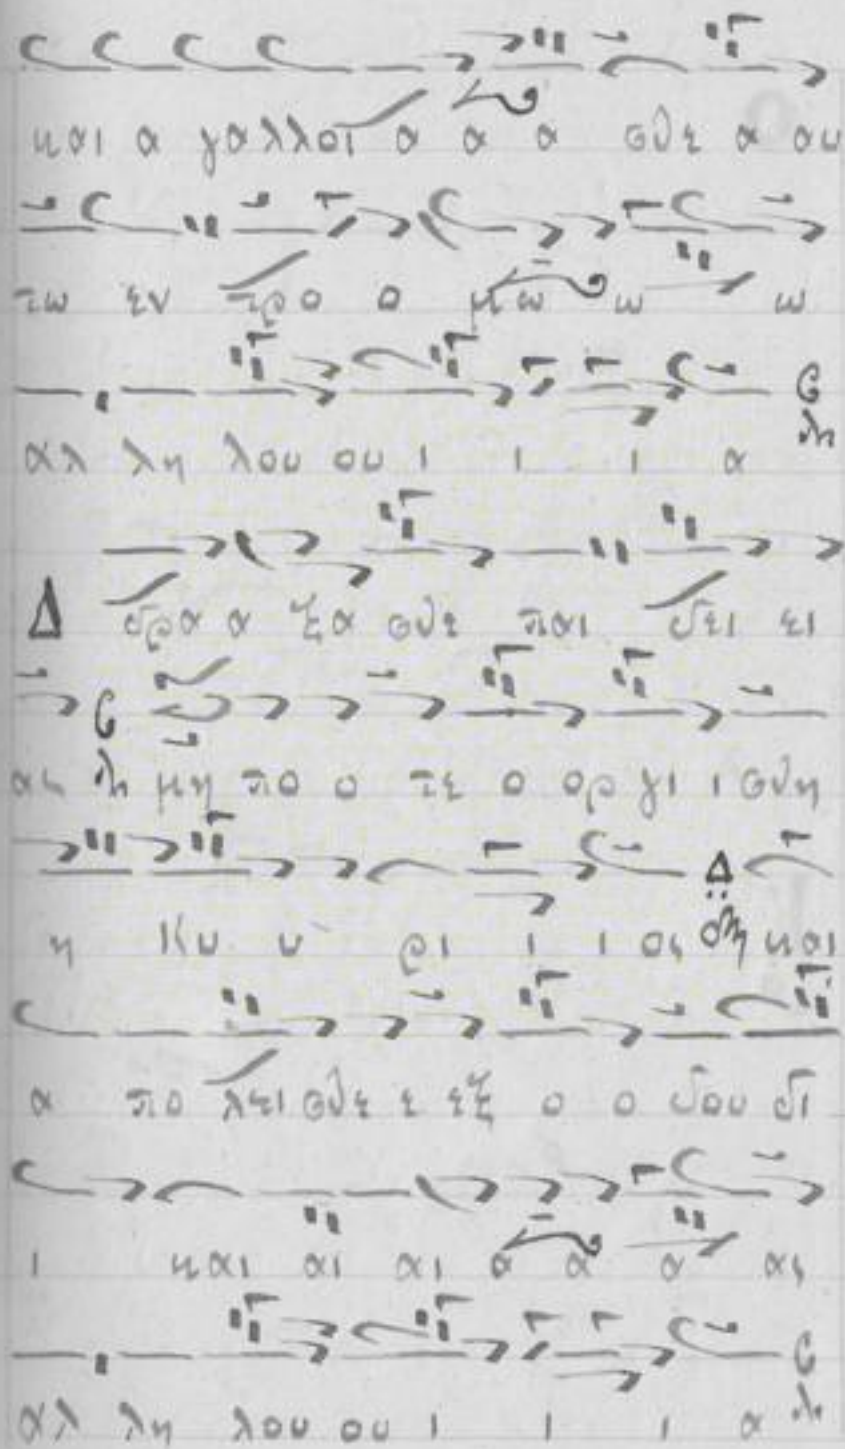 και α γαλλοι α α α σθε α αυ
τω εν τρο ο μω ω ω
αλ λη λου ου ι ι ι α
Δ δρα α ξα σθε παι δει ει
ας μη πο ο τε ο ορ γι ι σθη
η Κυ υ ρι ι ι ος και
α πο λει σθε ε εξ ο ο δου δι
ι και αι αι α α α ας
αλ λη λου ου ι ι ι α